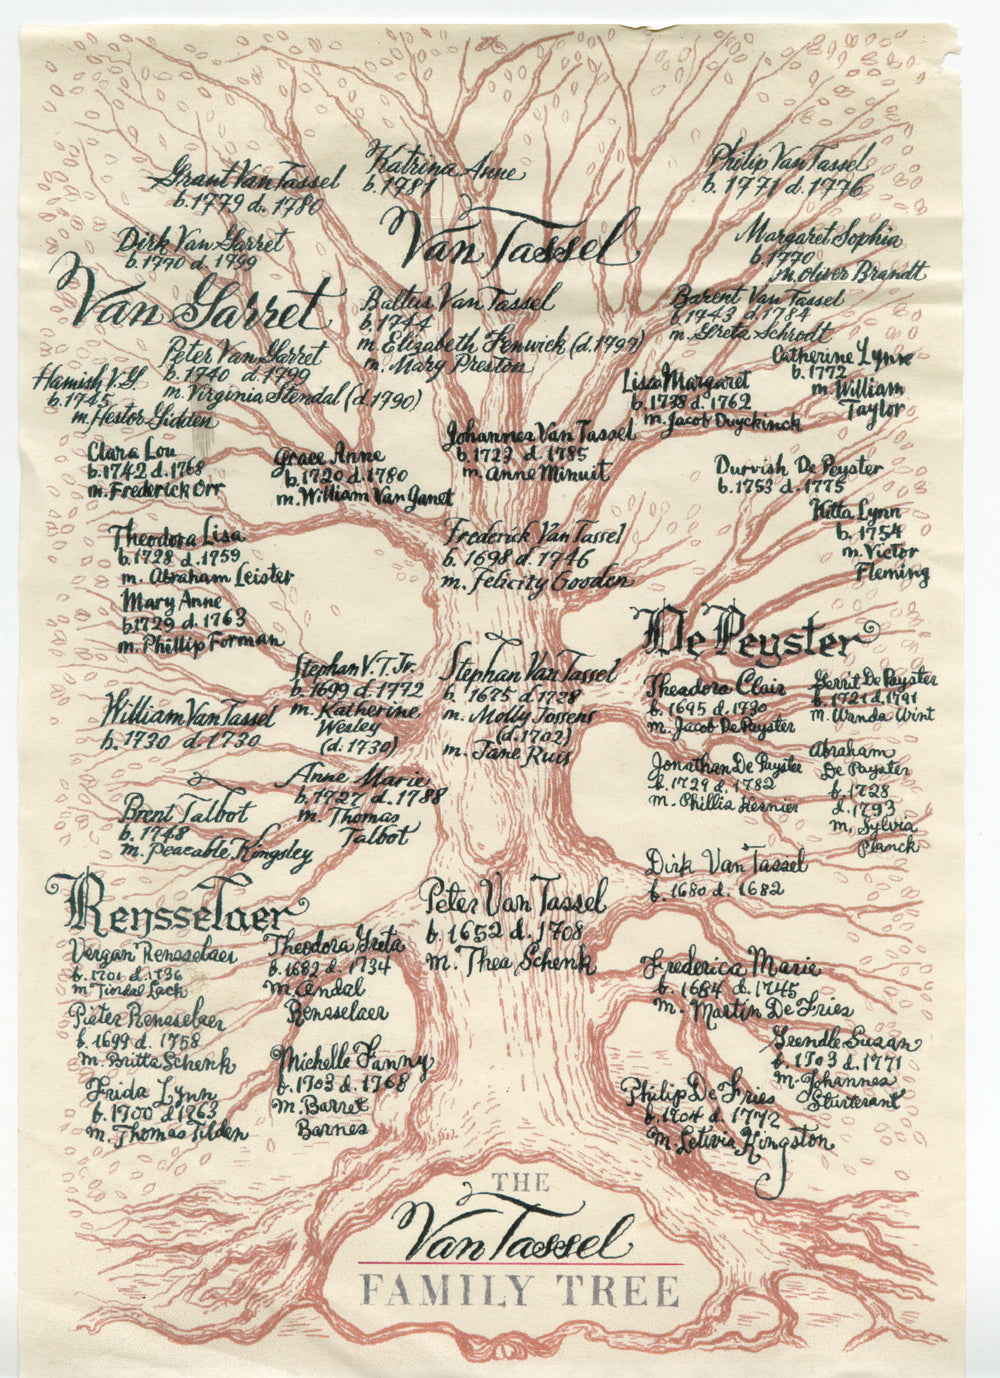 Grant Van Tassel
b. 1779 d. 1780
Katrina Anne
b. 1781
Philip Van Tassel
b. 1771 d. 1776
Van Tassel
Dirk Van Garret
b. 1770 d. 1799
Margaret Sophia
b. 1770
m. Oliver Brandt
Van Garret
Baltus Van Tassel
b. 1744
m. Elizabeth Fenwick (d. 1797)
m. Mary Preston
Barent Van Tassel
b. 1743 d. 1784
m. Greta Schrodt
Peter Van Garret
b. 1740 d. 1799
m. Virginia Stendal (d. 1790)
Hamish V. G.
b. 1745
m. Hestor Gidden
Catherine Lynne
b. 1772
m. William
Taylor
Lisa Margaret
b. 1738 d. 1762
m. Jacob Duyckinck
Clara Lou
b. 1742 d. 1768
m. Frederick Orr
Grace Anne
b. 1720 d. 1780
m. William Van Ganet
Johannes Van Tassel
b. 1722 d. 1785
m. Anne Minuit
Durvish De Peyster
b. 1753 d. 1775
Kitta Lynn
b. 1754
m. Victor
Fleming
Theodora Lisa
b. 1728 d. 1759
m. Abraham Leister
Mary Anne
b. 1729 d. 1763
m. Phillip Forman
Frederick Van Tassel
b. 1698 d. 1746
m. Felicity Gooden
De Peyster
Stephan V. T. Jr.
b. 1699 d. 1772
m. Katherine
Wesley
(d. 1730)
Stephan Van Tassel
b. 1675 d. 1728
m. Molly Jossens
(d. 1702)
m. Jane Ruis
Theadora Clair
b. 1695 d. 1790
m. Jacob De Payster
Gerrit De Payster
b. 1721 d. 1791
m. Wanda Wint
William Van Tassel
b. 1730 d. 1730
Jonathan De Payster
b. 1729 d. 1782
m. Phillia Kesnier
Abraham
De Payster
b. 1728
d. 1793
m. Sylvia
Planck
Anne Marie
b. 1727 d. 1788
m. Thomas
Talbot
Brent Talbot
b. 1748
m. Peacable Kingsley
Dirk Van Tassel
b. 1680 d. 1682
Rensselaer
Peter Van Tassel
b. 1652 d. 1708
m. Thea Schenk
Vergan Rensselaer
b. 1701 d. 1736
m. Tindal Lack
Theodora Greta
b. 1682 d. 1734
m. Andal
Rensselaer
Frederica Marie
b. 1684 d. 1745
m. Martin De Fries
Pieter Rensselaer
b. 1699 d. 1758
m. Britta Schenk
Geendle Susan
b. 1703 d. 1771
m. Johannes
Sturterant
Michelle Fanny
b. 1703 d. 1768
m. Barret
Barnes
Frida Lynn
b. 1700 d. 1763
m. Thomas Tilden
Philip De Fries
b. 1704 d. 1772
m. Letivia Kingston
THE
Van Tassel
FAMILY TREE